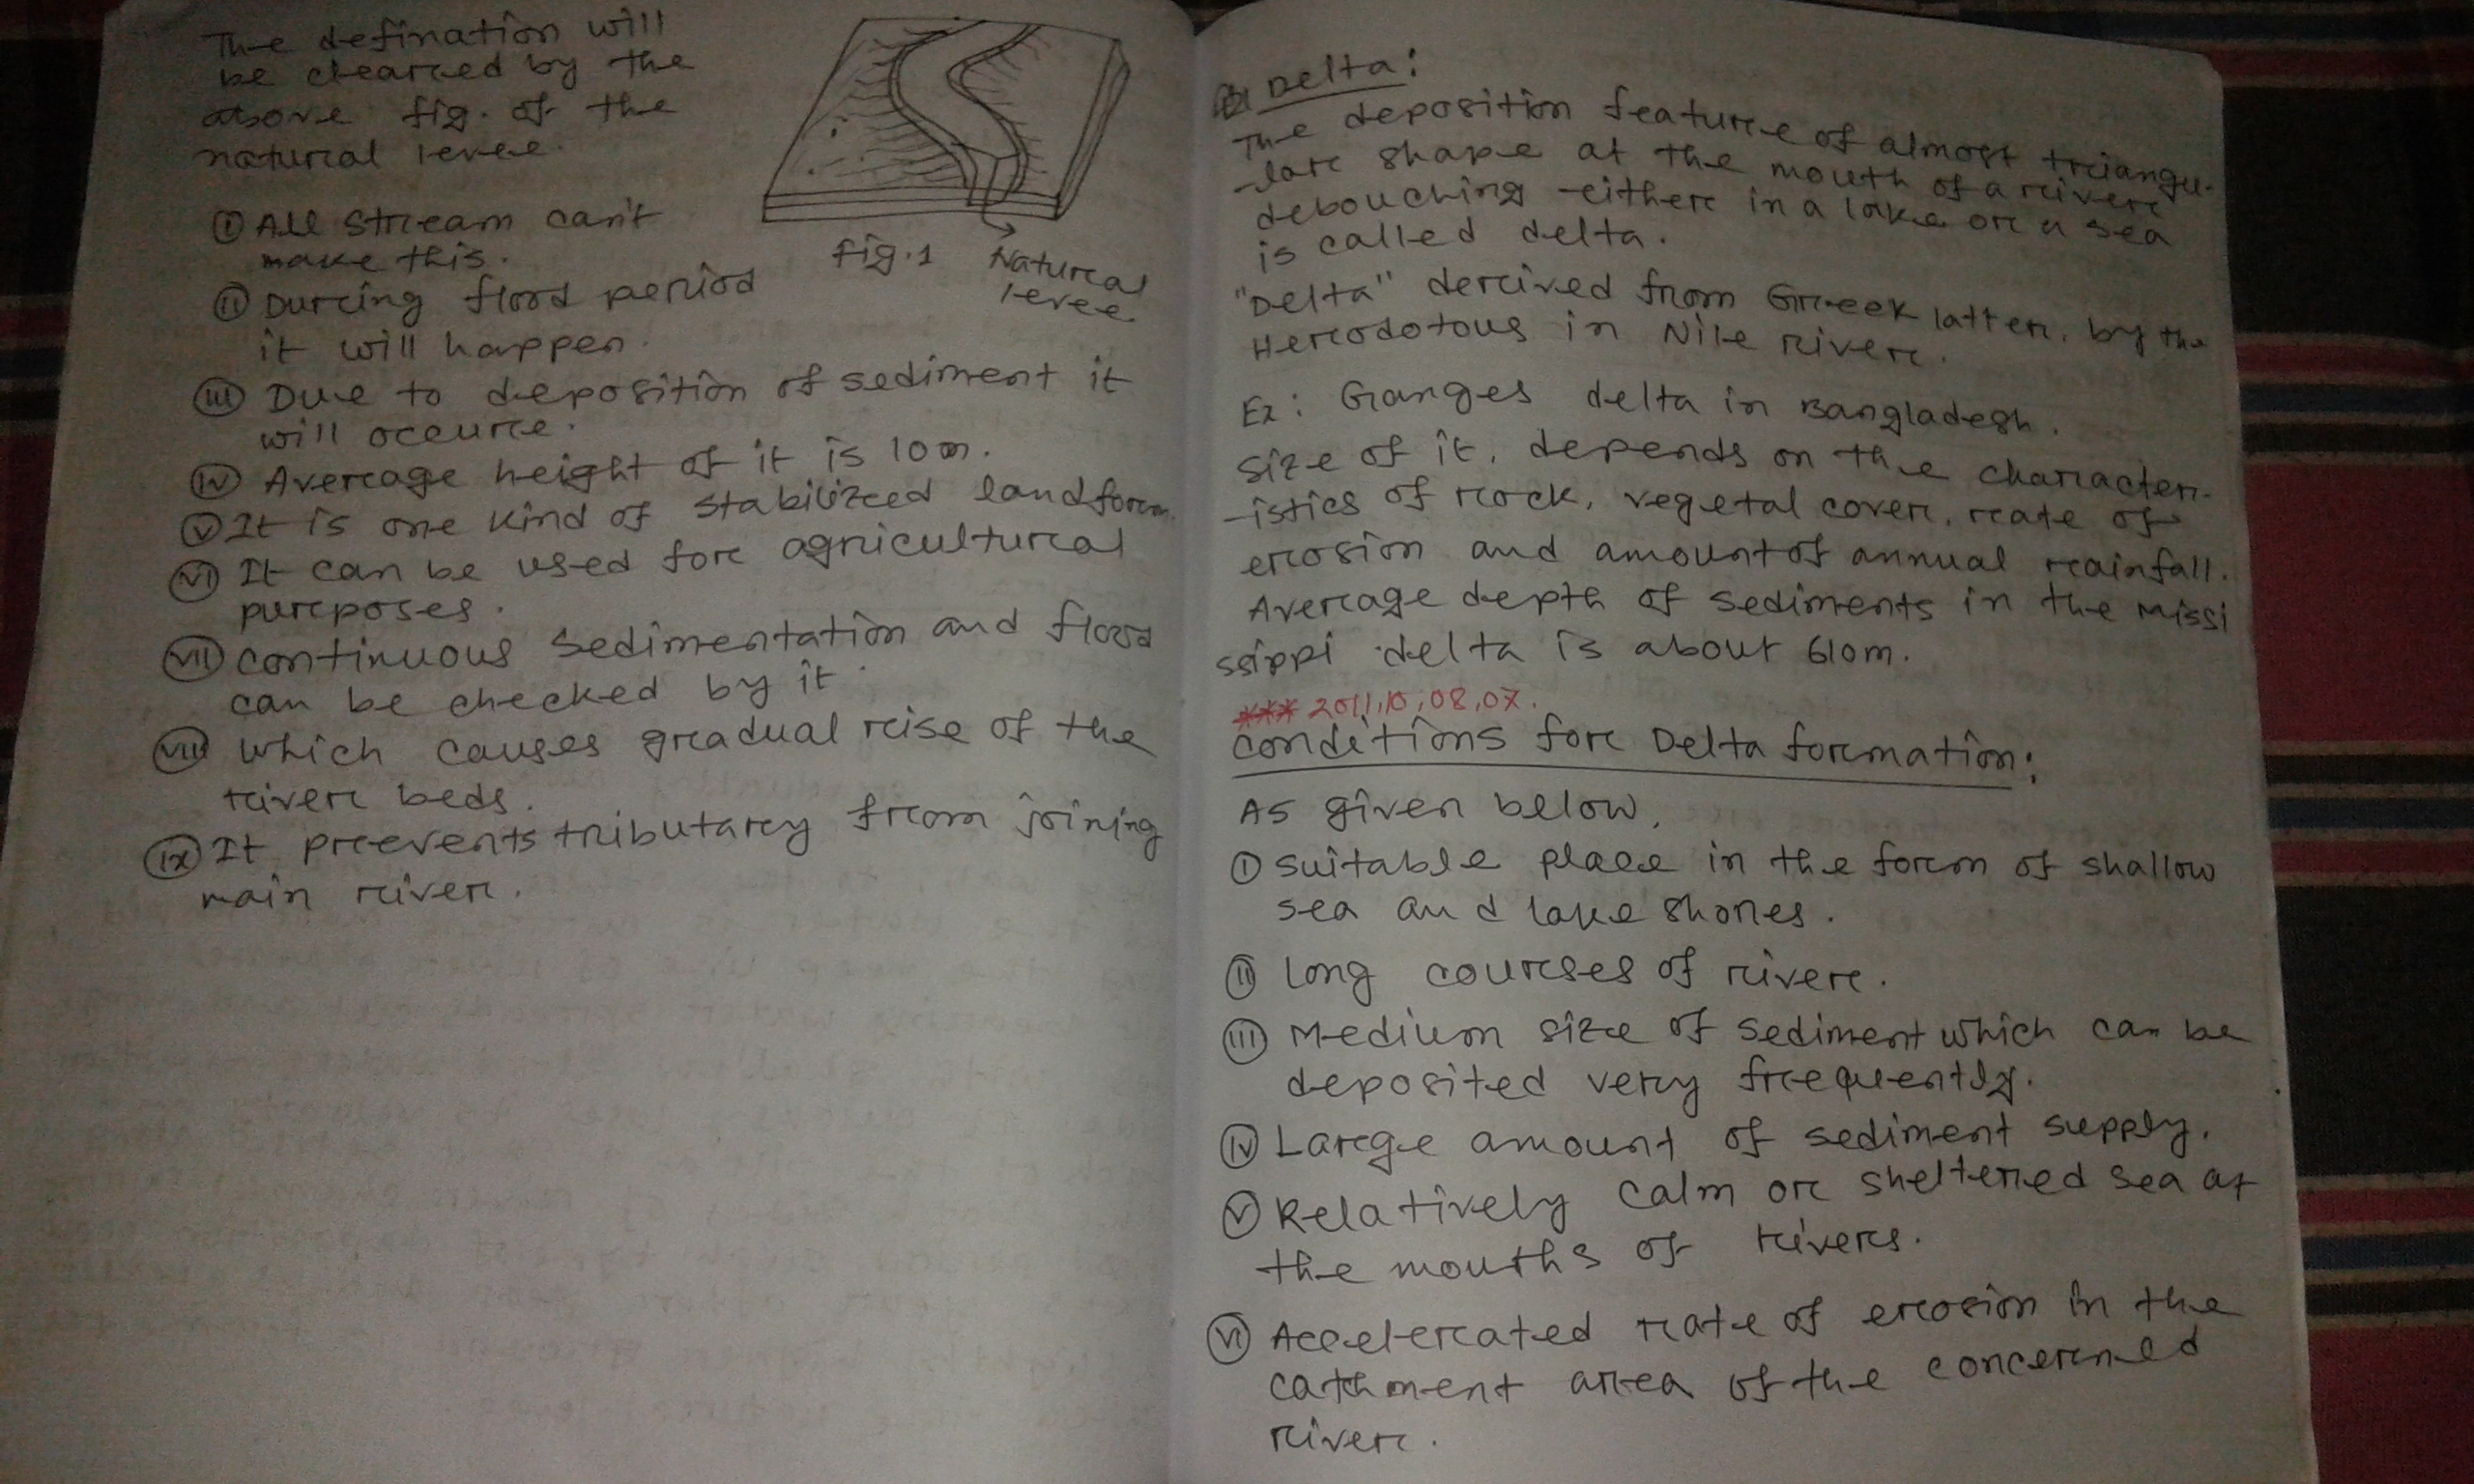 The defination will
be cleared by the
above fig. of the
natural levee.
Fig.1 Natural
levee
(i) All stream can't
make this.
(ii) During flood period
it will happen.
(iii) Due to deposition of sediment it
will occure.
(iv) Average height of it is 10m.
(v) It is one kind of stabilized landform.
(vi) It can be used for agricultural
purposes.
(vii) continuous sedimentation and flood
can be checked by it.
(viii) which causes gradual rise of the
river beds.
(ix) It prevents tributary from joining
main river.
Delta:
The deposition feature of almost triangu-
-lar shape at the mouth of a river
debouching either in a lake or a sea
is called delta.
"Delta" derived from Greek latter, by the
Herodotous in Nile river.
Ex: Ganges delta in Bangladesh.
size of it, depends on the character-
-istics of rock, vegetal cover, rate of
erosion and amount of annual rainfall.
Average depth of sediments in the Missi
ssippi delta is about 610m.
*** 2011,10,08,07.
conditions for Delta formation:
As given below,
(i) suitable place in the form of shallow
sea and lake shores.
(ii) Long courses of river.
(iii) Medium size of sediment which can be
deposited very frequently.
(iv) Large amount of sediment supply.
(v) Relatively calm or sheltered sea at
the mouths of rivers.
(vi) Accelerated rate of erosion in the
catchment area of the concerned
river.